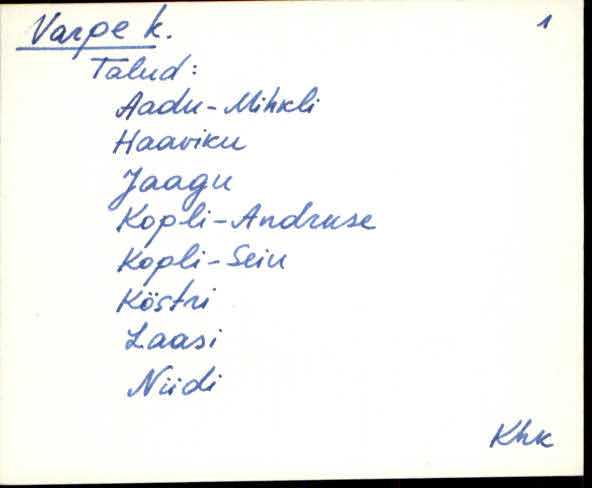 Varpe k.
1
Talud:
Aadu-Mihkli
Haaviku
Jaagu
Kopli-Andruse
Kopli-Seiu
Köstri
Laasi
Niidi
Khk